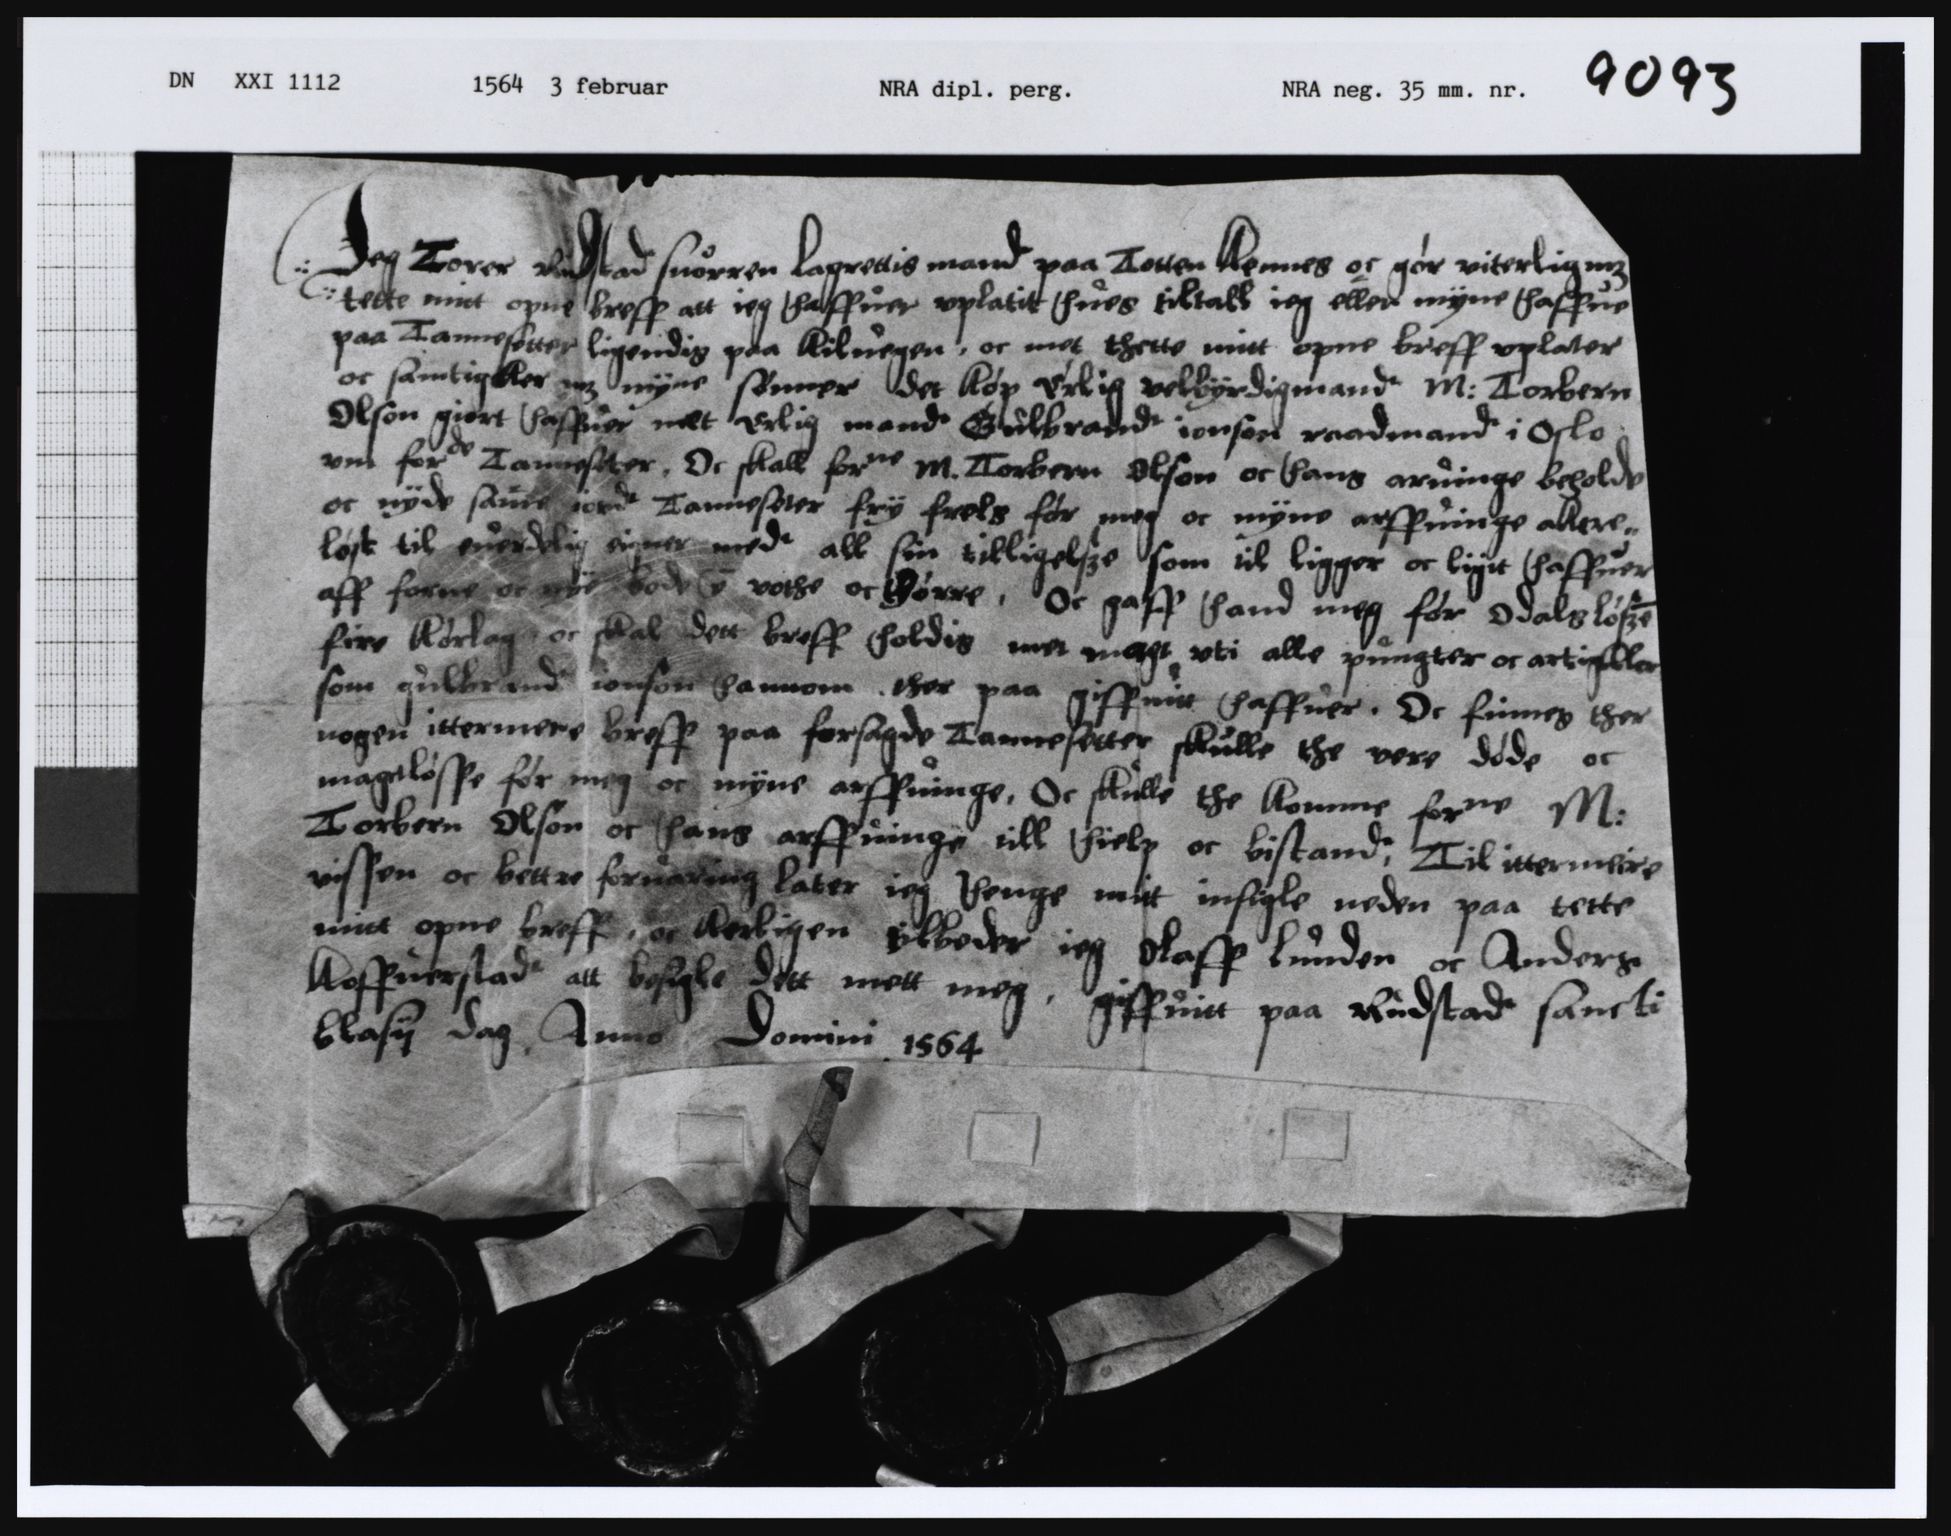 DN XXI 1112 1564 3 februar NRA dipl. perg. NRA neg. 35 mm. nr. 9093
Jeg Torer Rudstad suorren lagrettis mand paa Totten Kennes oc gør viterlig mz
tette mitt opne breff att ieg haffuer vplatit hues tiltall ieg eller myne haffue
paa Tannesetter ligendis paa Kiluegen, oc met thette mitt opne breff vplater
oc samtycker mz myne sønner det køp erlig velbyrdigmand M: Torbern
Olson giort haffuer met erlig mand Gulbrand ionson raadmand i Oslo
vm forde Tanneseter, Oc skall forne M. Torbern Olson oc hans aruinge beholde
oc nyde same iord Tanneseter fry frels før meg oc myne arffuinge akere„
løst til euerdelig eigner med all sin tilligelsze som til ligger oc ligit haffuer
aff forne oc nye bode y vothe oc tørre, Oc gaff hand meg før odalsløsze
fire kørlag, oc skal dett breff holdis met magt vti alle pungter oc artickler
som gulbrand ionson hannom ther paa giffuitt haffuer. Oc finnes ther
nogen ittermere breff paa forsagde Tannesetter skulle the vere døde oc
magtløsse før meg oc myne arffuinge, Oc skulle the komme forne M:
Torbern Olson oc hans arffuinge till hielp oc bistand, Til ittermeire
vissen oc bettre foruaring later ieg henge mitt insigle neden paa tette
mitt opne breff, oc kerligen tilbeder ieg Olaff Lunden oc Anders
Koffuerstad att besigle dett mett meg, giffuitt paa Rudstad sancti
blasij dag, Anno Domini 1564